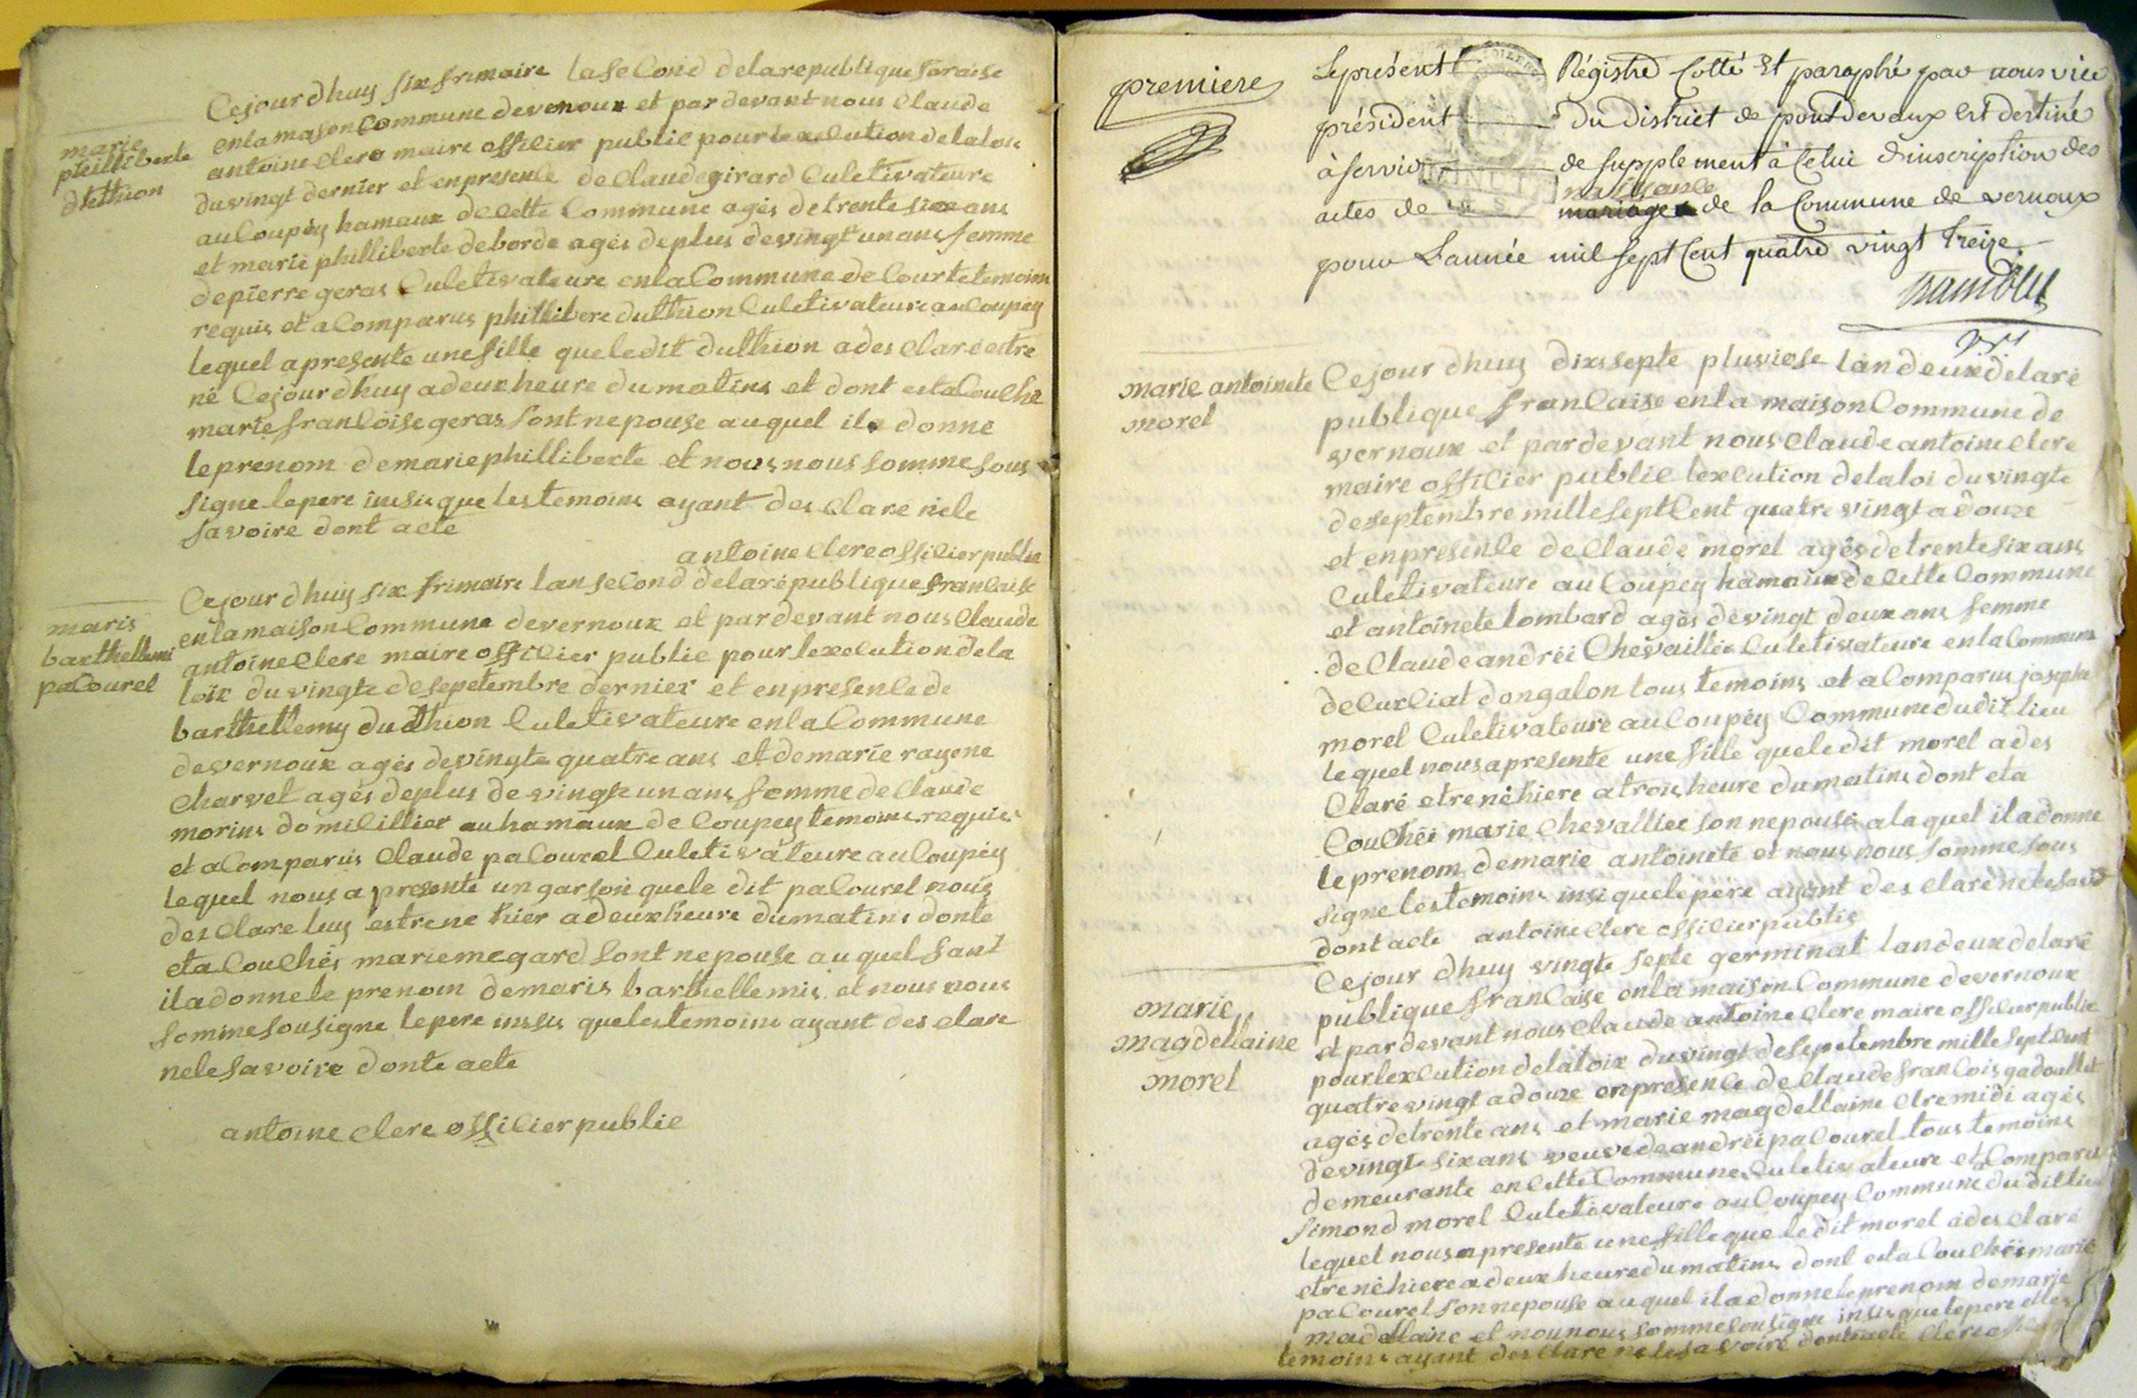 marie
philliberte
dtethion
Cejourdhuy six frimaire la second delarepublique faraise
enlamaison Commune devernoux et pardevant nous Claude
antoine Clere maire offilier publie pour lexelution delaloix
duvingt dernier et enpresenle de Claude girard Culetivateure
auCoupéy hamaux decette Commune agés detrente six ans
et marie philliberte deborde agés deplus devingt un ans femme
depierre geras Culetivateure enlaCommune de Courtetemoins
requis et aComparus phillibere duthion Culetivateure auCoupey
lequel apresente unefille queledit duthion ades Clare estre
né Cejourdhuy adeux heure dumatins et dont estaCouche
marie franLoise geras sont nepouse auquel ila donne
leprenom demarie philliberte et nous nous somme sous
signe lepere insis que lestemoins ayant des Clare nele
savoire dont acte
antoine Clere offilier publie
maris
barthellemi
paCourel
Cejourdhuy six frimaire lan seCond delarépublique franLaise
enlamaison Commune devernoux et pardevant nous Claude
antoine Clere maire offilier publie pour lexelution dela
loix duvingte desepetembre dernier et enpresenle de
barthellemy duthion Culetivateure enlaCommune
devernoux agés devingte quatre ans et demarie rayene
Charvet agés deplus de vingte un ans femme de Claude
morins domicillier auhamaux de Coupey temoins requis
et aComparus Claude paCourel Culetivateure auCoupéy
lequel nous a presente un garson quele dit paCourel nous
des Clare luy estrene hier adeuxheure dumatins donte
etaCouchés mariemegard sont nepouse auquel sant
iladonnele prenom demaris barthellemis et nous nous
somme sousigne lepere inssis quelestemoins ayant des Clare
nelesavoire donte acte
antoine Clere offilier publie
premiere
Leprésent Régistre Cotté Et paraphé par nous vice
président du District de pontdevaux est destiné
à servir de supplement à Celui d'inscription des
naissance
actes de mariage de la Commune de vernoux
pour L'année mil sept Cent quatre vingt treize.
marie antoinete
morel
Cejourdhuy dixsepte pluviose lan deux delaré
publique franLaise enla maison Commune de
vernoux et pardevant nous Claude antoine Clere
maire offilier publie lexelution delaloi duvingte
deseptembre mille sept Cent quatre vingt adouze
et enpresenle de Claude morel agés detrente six ans
Culetivateure au Coupey hamaux de Cette Commune
et antoinete lombard agés devingt deux ans femme
de Claude andréé Chevaillier Culetivateure enlaCommune
deCurliat dongalon tous temoins et aComparus josephe
morel Culetivateure auCoupéy Commune dudit lieu
lequel nous apresente une fille queledit morel ades
Claré etrené hiere atrois heure dumatins dont eta
Couchéé marie Chevallier son nepouse alaquel iladonne
leprenom demarie antoinete et nous nous somme sous
signe lestemoins insi quelepere ayant des Claré nele savoir
dont acte antoine Clere offilier publie
marie
magdellaine
morel
Cejour dhuy vingte septe germinat landeux delaré
publique franLaise enla maison Commune devernoux
et pardevant nous Claude antoine Clere maire offilier publie
pour lexelution delaloix duvingt desepetembre mille sept Cent
quatre vingt adouze enpresenle de Claude franLois gadoullet
agés detrente ans et marie magdellaine etremidi agés
devingte six ans veuve deandréé paCourel tous temoins
demeurante enCette Commune Culetivateure et aComparu
simond morel Culetivateure auCoupey Commune dudittieu
lequel nous apresente unefille que le dit morel ades Claré
etrené hiere adeux heure dumatins dont esta Couchés marie
paCourel son nepouse auquel iladonneleprenom demarie
madellaine et nounous somme sousigne insis quelepere et les
temoins ayant des Clare nelesavoire dontacte